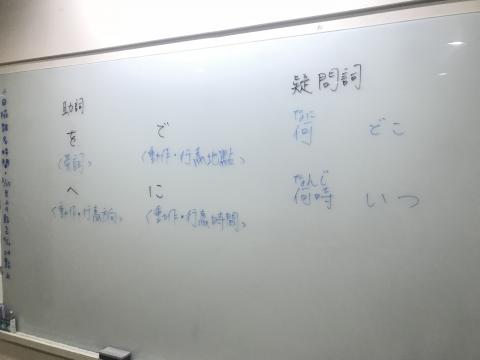 助詞
を で
(受詞) (動作・行為地點)
へ に
(動作・行為方向) (動作・行為時間)
疑問詞
なに
何 どこ
なんじ
何時 いつ